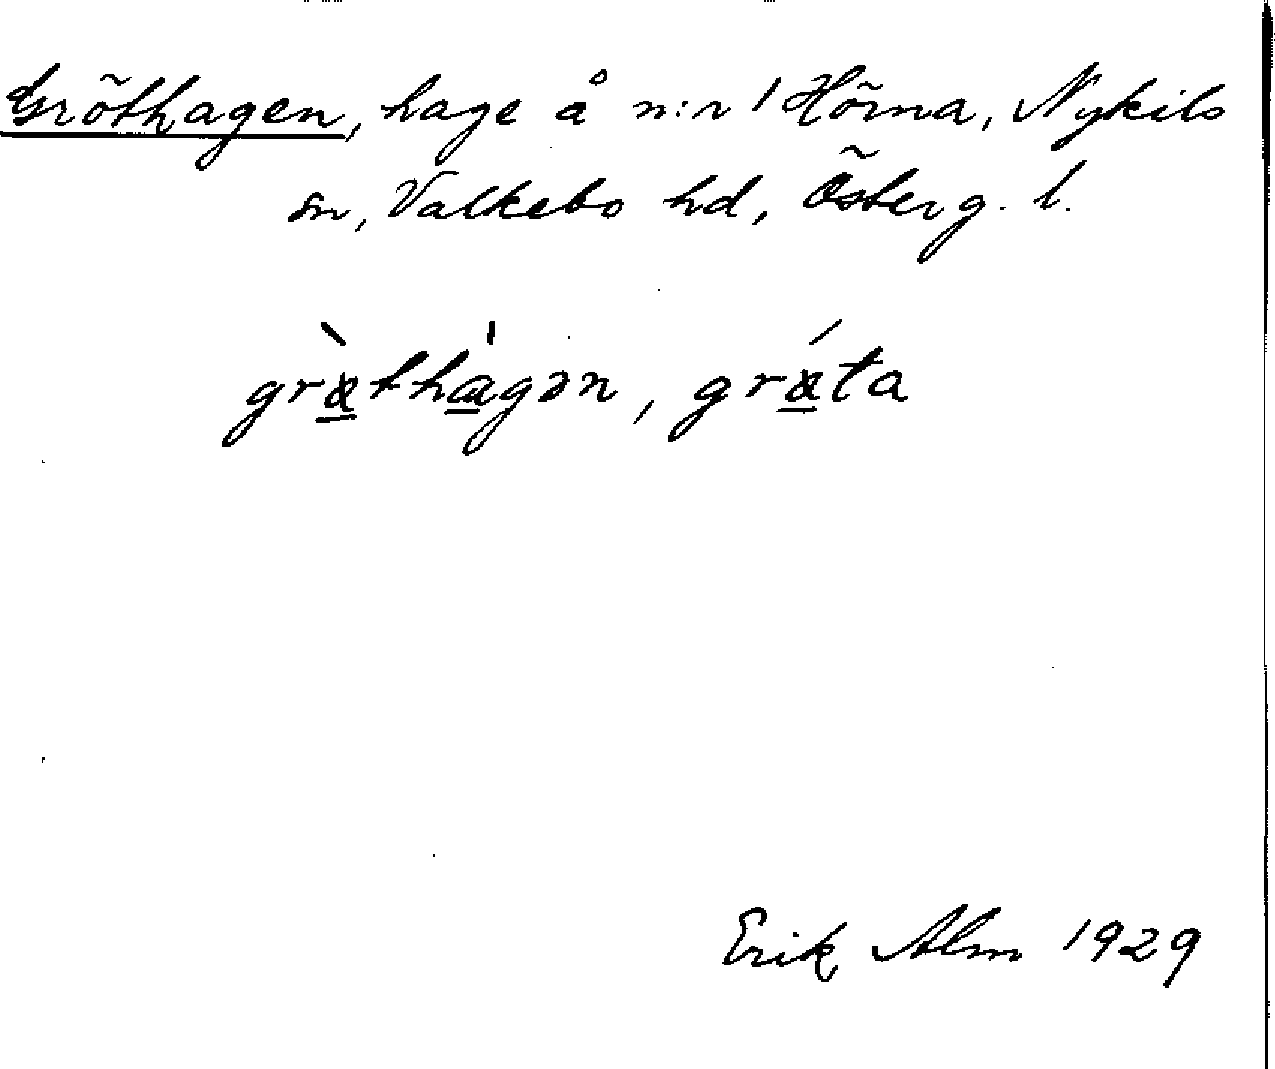 Gröthagen, hage å n:r 1 Hörna, Nykils
sn, Valkebo hd, Österg. l.
græ̀thɑ̀gən, grǽta
Erik Alm 1929